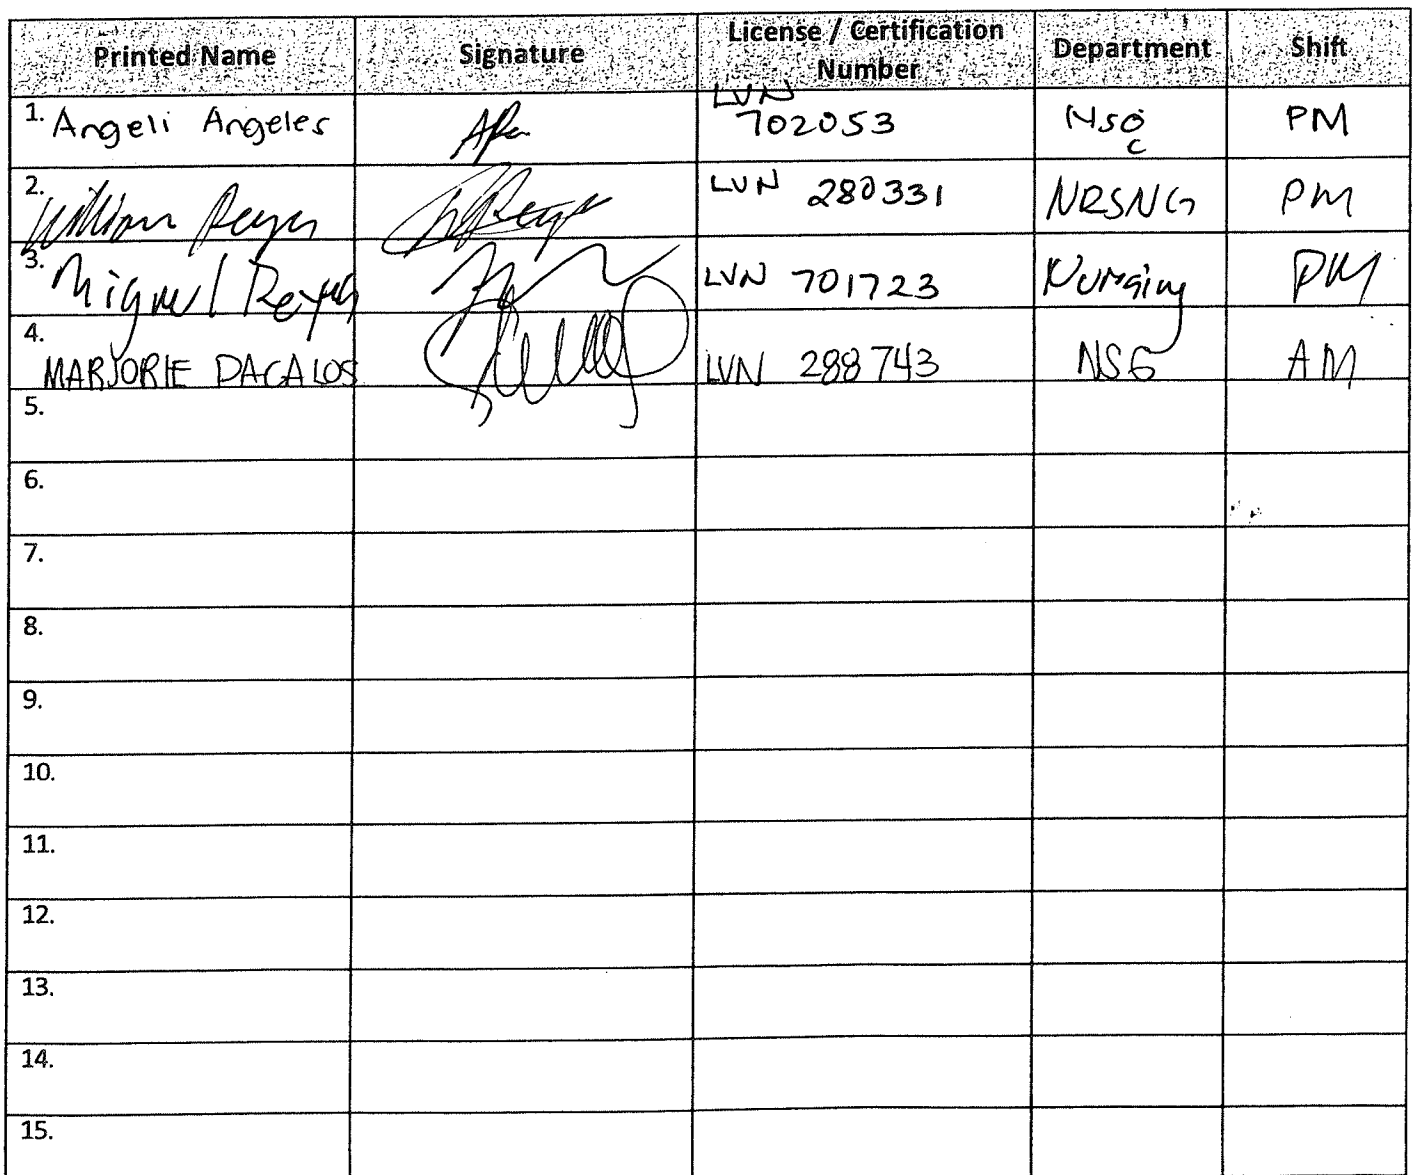 Printed Name Signature License / Certification Number Department Shift
1. Angeli Angeles LVN 702053 PM
2. William Reyes LVN 280331 NRSNG PM
3. Miguel Reyes LVN 701723 Nursing PM
4. MARJORIE DACALOS LVN 288743 NSG AM
5.
6.
7.
8.
9.
10.
11.
12.
13.
14.
15.